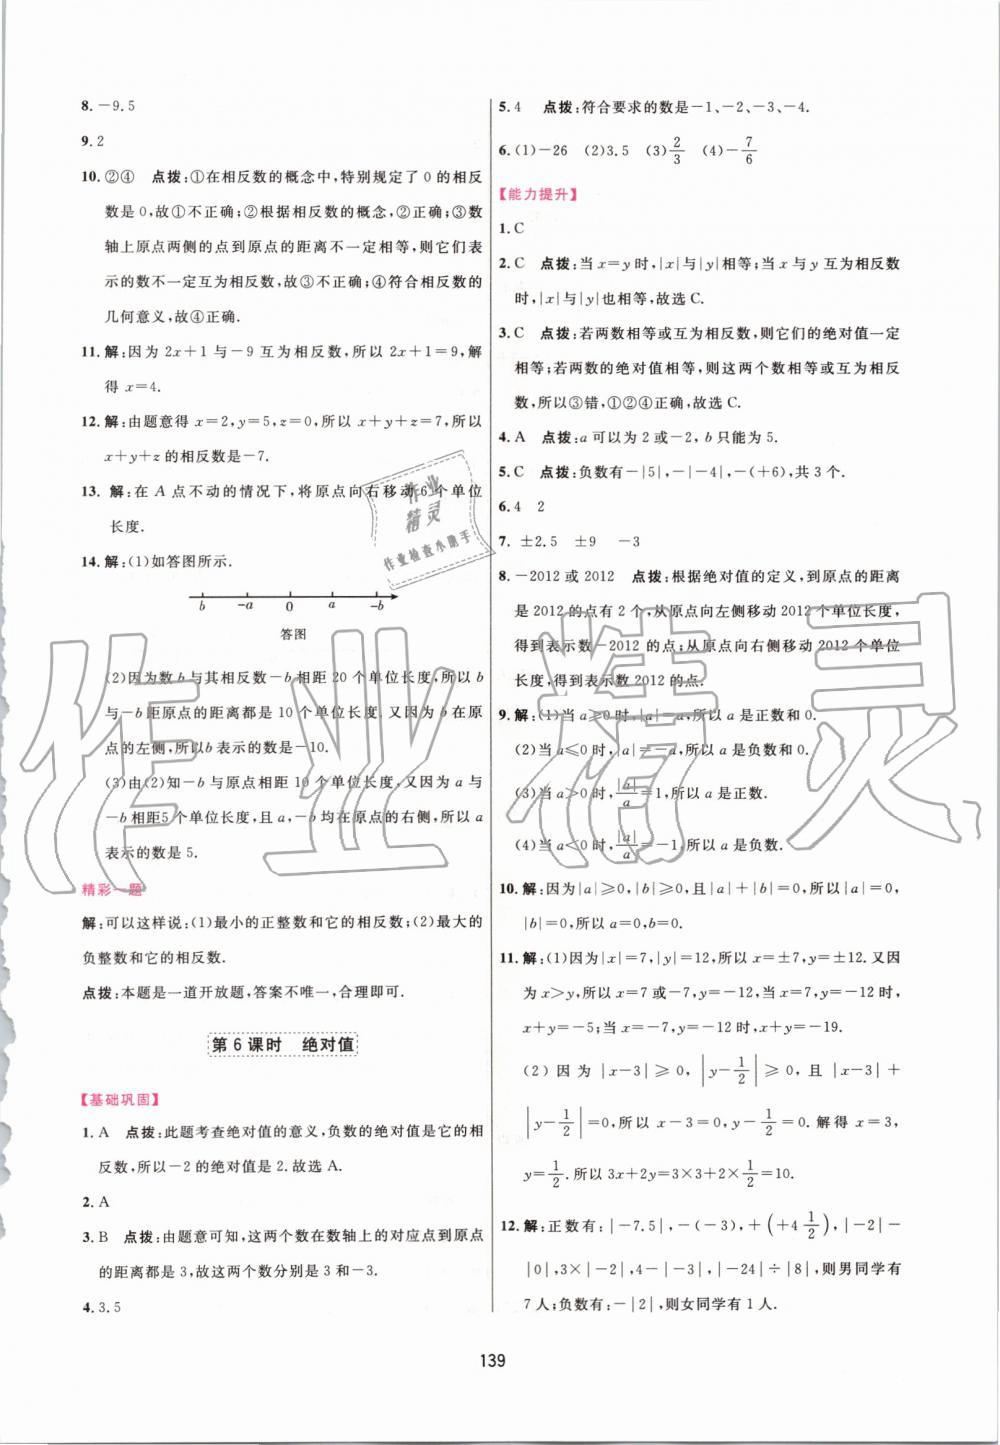 8. －9.5
9. 2
10. ②④　点拨:①在相反数的概念中,特别规定了 0 的相反
数是 0,故①不正确;②根据相反数的概念,②正确;③数
轴上原点两侧的点到原点的距离不一定相等,则它们表
示的数不一定互为相反数,故③不正确;④符合相反数的
几何意义,故④正确.
11. 解:因为 2x＋1 与－9 互为相反数,所以 2x＋1＝9,解
得 x＝4.
12. 解:由题意得 x＝2,y＝5,z＝0,所以 x＋y＋z＝7,所以
x＋y＋z 的相反数是－7.
13. 解:在 A 点不动的情况下,将原点向右移动 6 个单位
长度.
14. 解:(1)如答图所示.
b －a 0 a －b
答图
(2)因为数 b 与其相反数－b 相距 20 个单位长度,所以 b
与－b 距原点的距离都是 10 个单位长度,又因为 b 在原
点的左侧,所以 b 表示的数是－10.
(3)由(2)知－b 与原点相距 10 个单位长度,又因为 a 与
－b 相距5 个单位长度,且 a,－b 均在原点的右侧,所以 a
表示的数是 5.
精彩一题
解:可以这样说:(1)最小的正整数和它的相反数;(2)最大的
负整数和它的相反数.
点拨:本题是一道开放题,答案不唯一,合理即可.
第 6 课时　绝对值
【基础巩固】
1. A　点拨:此题考查绝对值的意义,负数的绝对值是它的相
反数,所以－2 的绝对值是 2.故选 A.
2. A
3. B　点拨:由题意可知,这两个数在数轴上的对应点到原点
的距离都是 3,故这两个数分别是 3 和－3.
4. 3.5
5. 4　点拨:符合要求的数是－1、－2、－3、－4.
6. (1)－26　(2)3.5　(3)2/3　(4)－7/6
【能力提升】
1. C
2. C　点拨:当 x＝y 时,|x|与|y|相等;当 x 与 y 互为相反数
时,|x|与|y|也相等,故选 C.
3. C　点拨:若两数相等或互为相反数,则它们的绝对值一定
相等;若两数的绝对值相等,则这两个数相等或互为相反
数,所以③错,①②④正确,故选 C.
4. A　点拨:a 可以为 2 或－2,b 只能为 5.
5. C　点拨:负数有－|5|,－|－4|,－(＋6),共 3 个.
6. 4　2
7. ±2.5　±9　－3
8. －2012 或 2012　点拨:根据绝对值的定义,到原点的距离
是 2012 的点有 2 个,从原点向左侧移动 2012 个单位长度,
得到表示数－2012 的点;从原点向右侧移动 2012 个单位
长度,得到表示数 2012 的点.
9. 解:(1)当 a≥0 时,|a|＝a,所以 a 是正数和 0.
(2)当 a≤0 时,|a|＝－a,所以 a 是负数和 0.
(3)当 a＞0 时,|a|/a＝1,所以 a 是正数.
(4)当 a＜0 时,|a|/a＝－1,所以 a 是负数.
10. 解:因为|a|≥0,|b|≥0,且|a|＋|b|＝0,所以|a|＝0,
|b|＝0,所以 a＝0,b＝0.
11. 解:(1)因为|x|＝7,|y|＝12,所以 x＝±7,y＝±12.又因
为 x＞y,所以 x＝7 或－7,y＝－12,当 x＝7,y＝－12 时,
x＋y＝－5;当 x＝－7,y＝－12 时,x＋y＝－19.
(2)因为|x－3|≥0,|y－1/2|≥0,且|x－3|＋
|y－1/2|＝0,所以 x－3＝0,y－1/2＝0.解得 x＝3,
y＝1/2.所以 3x＋2y＝3×3＋2×1/2＝10.
12. 解:正数有:|－7.5|,－(－3),＋(＋4 1/2),|－2|－
|0|,3×|－2|,4－|－3|,|－24|÷|8|,则男同学有
7 人;负数有:－|2|,则女同学有 1 人.
139
作业精灵
作业
精灵
作业检查小助手